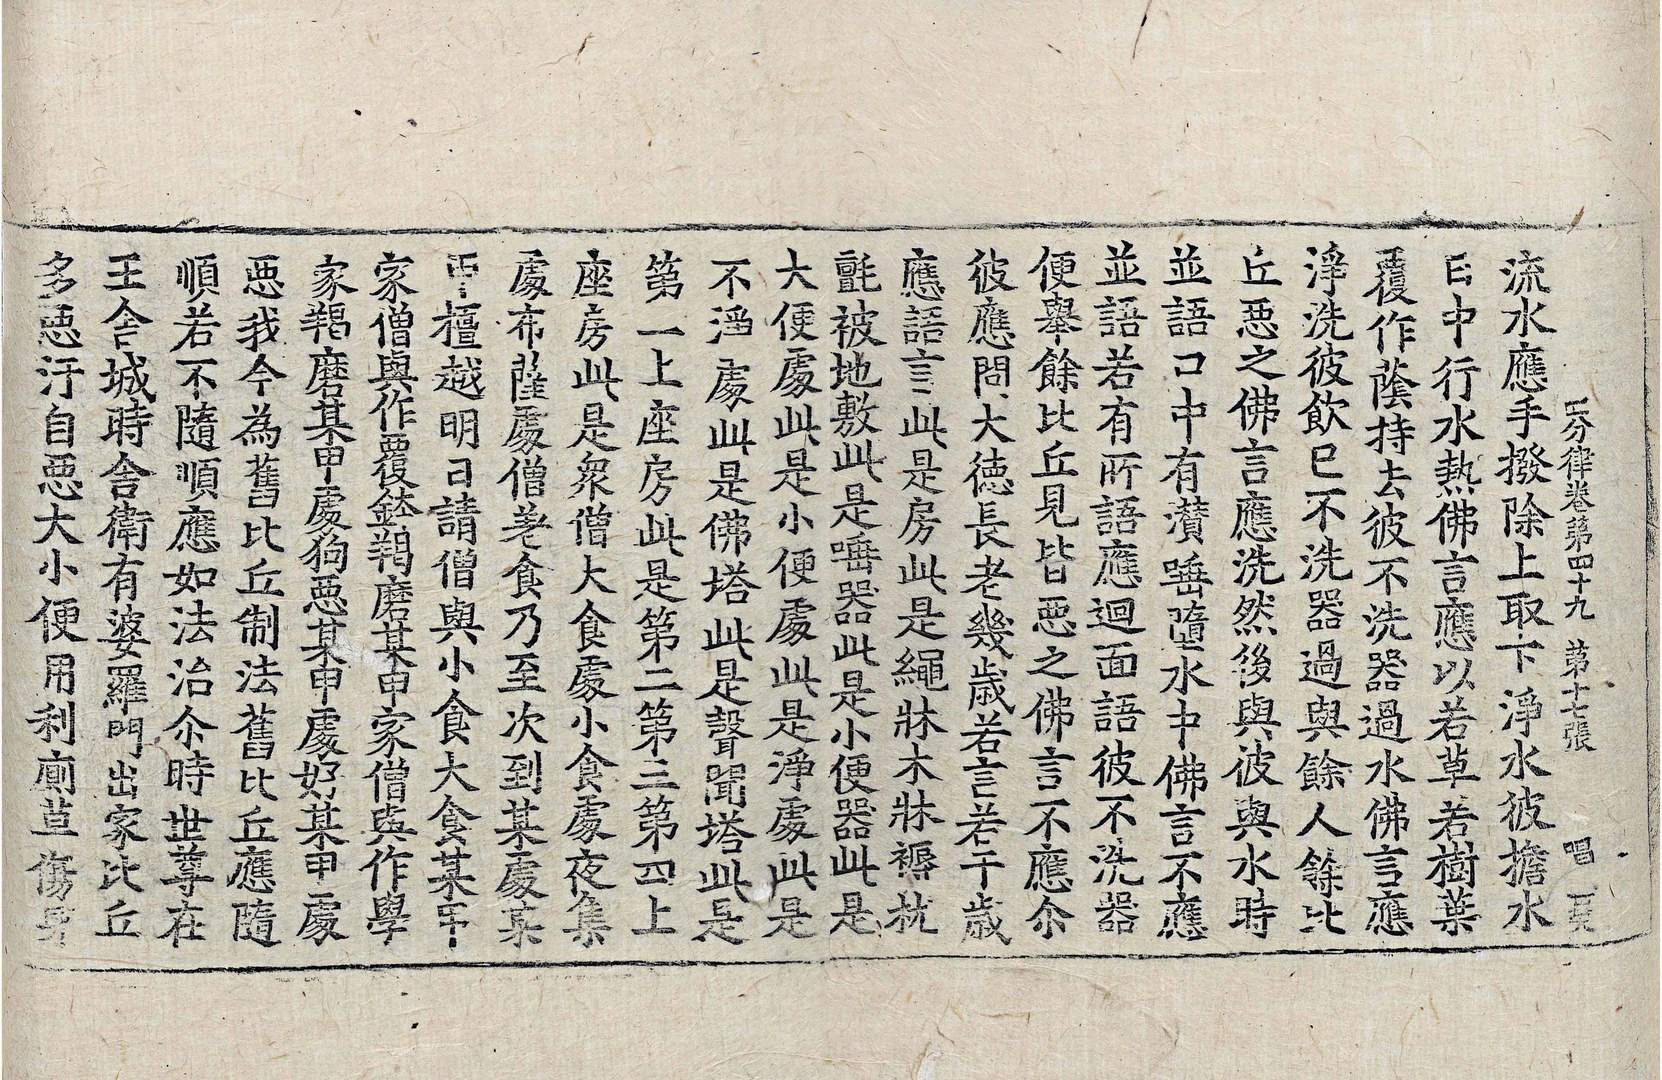 四分律卷第四十九 第十七張 唱
流水應手撥除上取下淨水彼擔水
日中行水熱佛言應以若草若樹葉
覆作蔭持去彼不洗器過水佛言應
淨洗彼飲已不洗器過與餘人餘比
丘惡之佛言應洗然後與彼與水時
並語口中有濽唾墮水中佛言不應
並語若有所語應迴面語彼不洗器
便舉餘比丘見皆惡之佛言不應尒
彼應問大德長老幾歲若言若干歲
應語言此是房此是繩牀木牀褥枕
氈被地敷此是唾器此是小便器此是
大便處此是小便處此是淨處此是
不淨處此是佛塔此是聲聞塔此是
第一上座房此是第二第三第四上
座房此是衆僧大食處小食處夜集
處布薩處僧差食乃至次到某處某
甲檀越明日請僧與小食大食某甲
家僧與作覆鉢羯磨某甲家僧與作學
家羯磨某甲處狗惡某甲處好某甲處
惡我今為舊比丘制法舊比丘應隨
順若不隨順應如法治尒時世尊在
王舍城時舍衛有婆羅門出家比丘
多惡汙自惡大小便用利廁草傷身